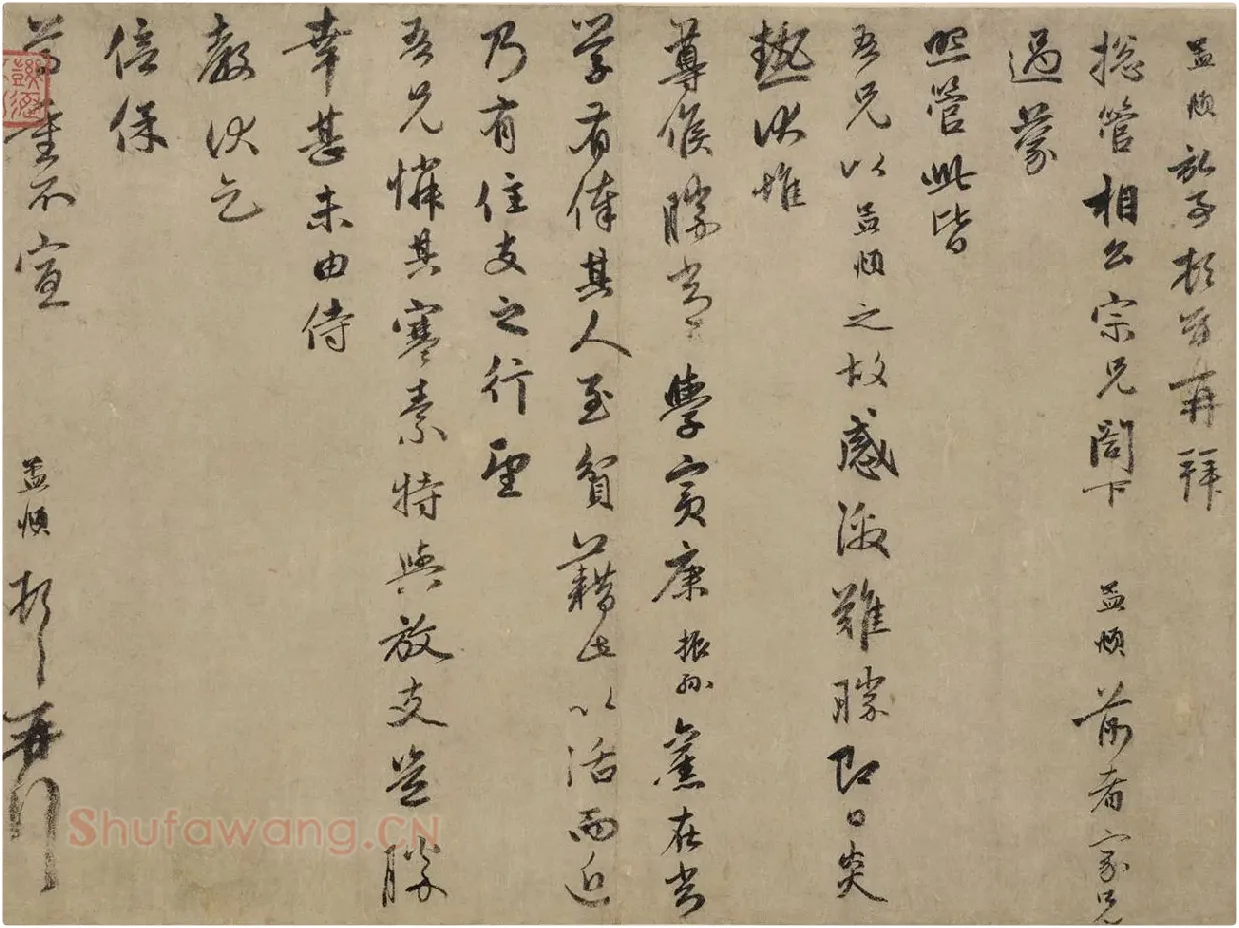 孟頫致子頓首再拜
總管相公宗兄閣下 孟頫 前者家兄
過蒙
照管此皆
吾兄以孟頫之故感激難勝即日炎
熱伏惟
尊候勝常 學賓康振孫舊在常
學有俸其人至貧藉此以活而近
乃有住支之行望
吾兄憐其寒素特與放支豈勝
幸甚未由侍
教伏乞
倍保
尊重不宣
孟頫 頓首再拜
Shufawang.CN